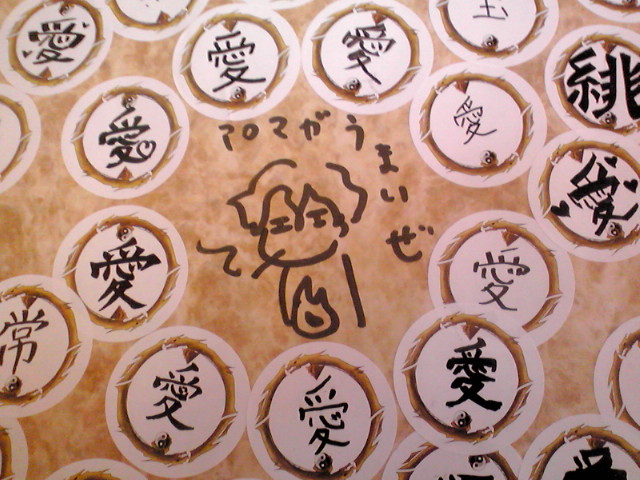 愛
愛
愛
玉
愛
愛
緋
愛
アロマがうまいぜ
愛
愛
常
愛
愛
愛